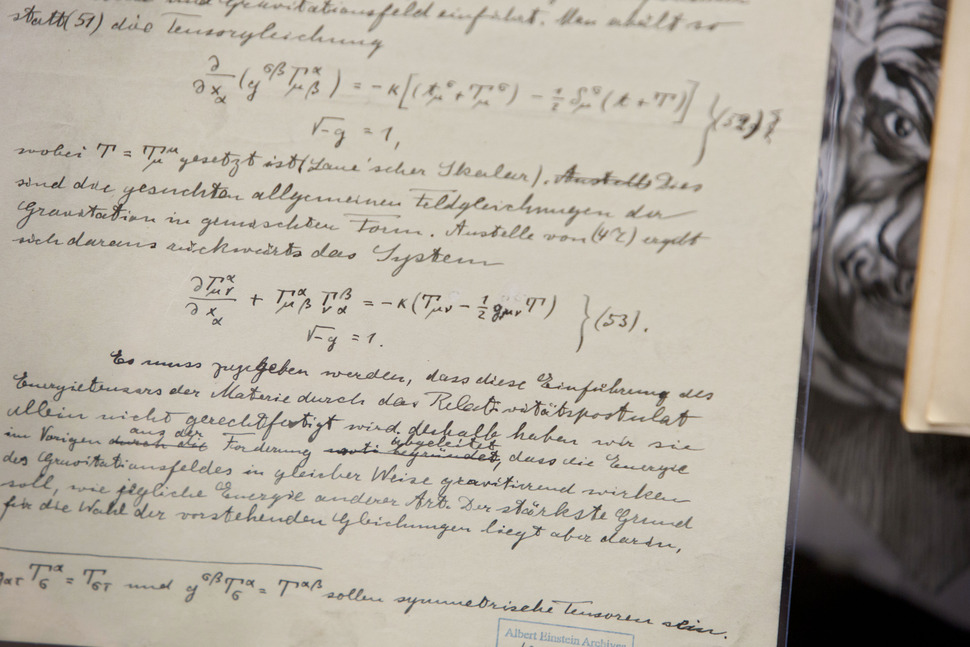 und Gravitationsfeld einführt. Man erhält so
statt (51) die Tensorgleichung
∂/∂x_α (g^{σβ} Γ_{μβ}^α) = -κ[(t_μ^σ + T_μ^σ) - ½ δ_μ^σ (t + T)] } (52)
√-g = 1,
wobei T = T_μ^μ gesetzt ist (Laue'scher Skalar). Anstelle Dies
sind die gesuchten allgemeinen Feldgleichungen der
Gravitation in gemischten Form. Anstelle von (47) ergibt
sich daraus rückwärts das System
∂Γ_{μν}^α/∂x_α + Γ_{μβ}^α Γ_{να}^β = -κ(T_{μν} - ½ g_{μν} T) } (53).
√-g = 1.
Es muss zugegeben werden, dass diese Einführung des
Energietensors der Materie durch das Relativitätspostulat
allein nicht gerechtfertigt wird. deshalb haben wir sie
aus der abgeleitet
im Vorigen durch die Forderung begründet, dass die Energie
des Gravitationsfeldes in gleicher Weise gravitierend wirken
soll, wie jegliche Energie anderer Art. Der stärkste Grund
für die Wahl der vorstehenden Gleichungen liegt aber darin,
g_{ατ} T_σ^α = T_{στ} und g^{σβ} T_σ^α = T^{αβ} sollen symmetrische Tensoren sein.
Albert Einstein Archives